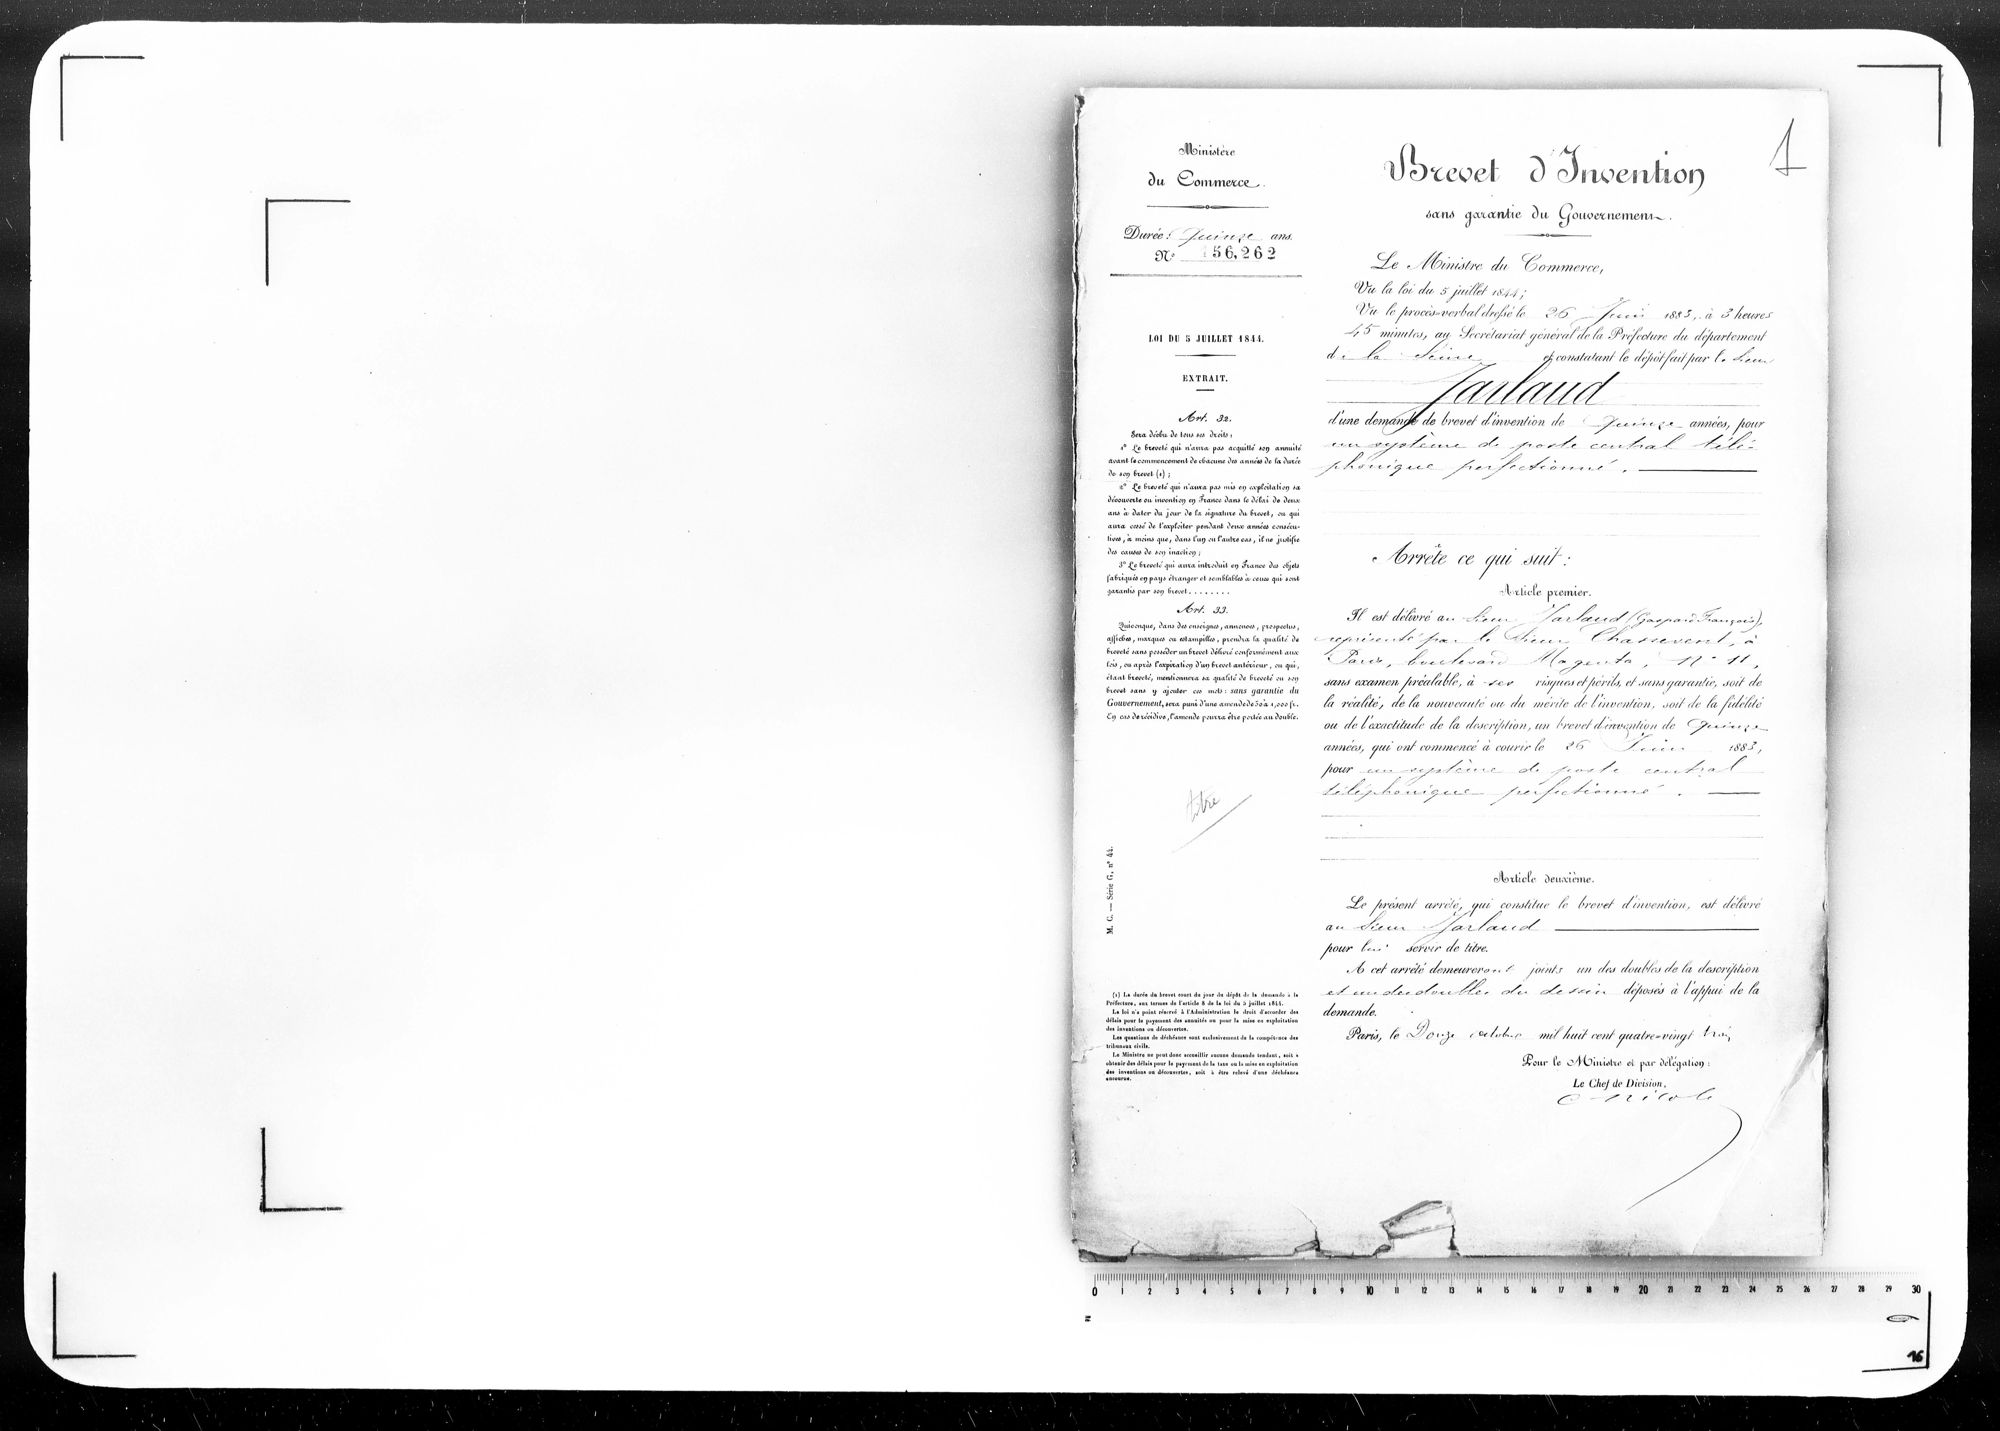 Ministère
du Commerce.
Durée : Quinze ans.
N° 156,262
LOI DU 5 JUILLET 1844.
EXTRAIT.
Art. 32.
Sera déchu de tous ses droits :
1° Le breveté qui n'aura pas acquitté son annuité
avant le commencement de chacune des années de la durée
de son brevet (1) ;
2° Le breveté qui n'aura pas mis en exploitation sa
découverte ou invention en France dans le délai de deux
ans à dater du jour de la signature du brevet, ou qui
aura cessé de l'exploiter pendant deux années consécu-
tives, à moins que, dans l'un ou l'autre cas, il ne justifie
des causes de son inaction ;
3° Le breveté qui aura introduit en France des objets
fabriqués en pays étranger et semblables à ceux qui sont
garantis par son brevet........
Art. 33.
Quiconque, dans des enseignes, annonces, prospectus,
affiches, marques ou estampilles, prendra la qualité de
breveté sans posséder un brevet délivré conformément aux
lois, ou après l'expiration d'un brevet antérieur, ou qui,
étant breveté, mentionnera sa qualité de breveté ou son
brevet sans y ajouter ces mots : sans garantie du
Gouvernement, sera puni d'une amende de 50 à 1,000 fr.
En cas de récidive, l'amende pourra être portée au double.
titre
M. C. — Série G, n° 44.
(1) La durée du brevet court du jour du dépôt de la demande à la
Préfecture, aux termes de l'article 8 de la loi du 5 juillet 1844.
La loi n'a point réservé à l'Administration le droit d'accorder des
délais pour le payement des annuités ou pour la mise en exploitation
des inventions ou découvertes.
Les questions de déchéance sont exclusivement de la compétence des
tribunaux civils.
Le Ministre ne peut donc accueillir aucune demande tendant, soit à
obtenir des délais pour le payement de la taxe ou la mise en exploitation
des inventions ou découvertes, soit à être relevé d'une déchéance
encourue.
1
Brevet d'Invention
sans garantie du Gouvernement.
Le Ministre du Commerce,
Vu la loi du 5 juillet 1844 ;
Vu le procès-verbal dressé le 26 Juin 1883, à 3 heures
45 minutes, au Secrétariat général de la Préfecture du département
de la Seine et constatant le dépôt fait par le sieur
Jarlaud
d'une demande de brevet d'invention de Quinze années, pour
un système de poste central télé-
phonique perfectionné.
Arrête ce qui suit :
Article premier.
Il est délivré au Sieur Jarlaud (Gaspard François),
représenté par le Sieur Chassevent, à
Paris, boulevard Magenta, N° 11,
sans examen préalable, à ses risques et périls, et sans garantie, soit de
la réalité, de la nouveauté ou du mérite de l'invention, soit de la fidélité
ou de l'exactitude de la description, un brevet d'invention de Quinze
années, qui ont commencé à courir le 26 Juin 1883,
pour un système de poste central
téléphonique perfectionné.
Article deuxième.
Le présent arrêté, qui constitue le brevet d'invention, est délivré
au Sieur Jarlaud
pour lui servir de titre.
A cet arrêté demeureront joints un des doubles de la description
et un des doubles du dessin déposés à l'appui de la
demande.
Paris, le Douze octobre mil huit cent quatre-vingt trois
Pour le Ministre et par délégation :
Le Chef de Division,
0 1 2 3 4 5 6 7 8 9 10 11 12 13 14 15 16 17 18 19 20 21 22 23 24 25 26 27 28 29 30
16